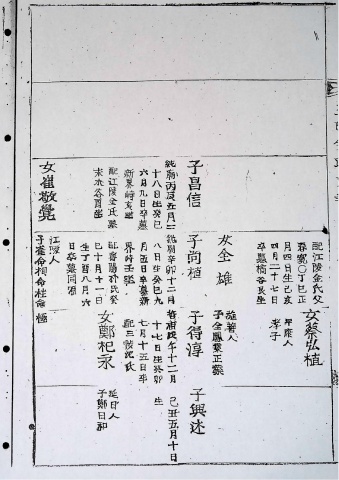 配江陵金氏父
春寬〇丁巳正
月四日生乙亥
四月二十七日
卒墓楠谷艮坐
女蔡弘植
平康人
孝子
女全雄
旌善人
子全鳳業正嶽
子昌信
純廟丙辰五月二
十八日生癸巳
六月九日卒墓
新界峙亥坐
配江陵金氏墓
子尚植
純廟辛卯十二月
八日生癸巳九
月五日卒墓新
界峙壬坐
巳十月十一日
生丁酉八月六
日卒墓同原
子得淳
庚午十二月
十七日生癸卯
七月十五日卒
子興述
己丑五月十日
生
女鄭杞永
延日人
子鄭日和
女崔敬覺
江陵人
子崔命相命桂命極